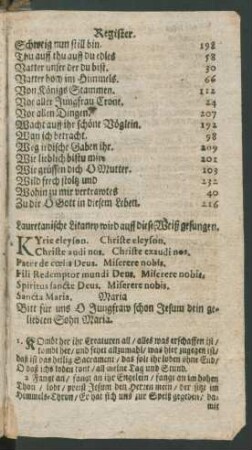 Register.
Schweig nun still bin. 198
Thu auff thu auff du edles 58
Vatter unser der du bist. 30
Vatter hoch im Himmels. 66
Von Königs Stammen. 112
Vor aller Jungfrau Cront. 24
Vor allen Dingen 207
Wacht auff ihr schöne Vöglein. 192
Wan ich betracht. 98
Weg irdische Gaben ihr. 209
Wie lieblich bistu mir 201
Wir grüssen dich O Mutter. 103
Wild frech stoltz und 232
Wohin zu mir vertrawtes 40
Zu dir O Gott in diesem Leben. 216
Lauretanische Litaney wird auff diese Weiß gesungen.
KYrie eleyson. Christe eleyson.
Christe audi nos. Christe exaudi nos.
Pater de cœlis Deus. Miserere nobis.
Fili Redemptor mundi Deus. Miserere nobis.
Spiritus sancte Deus. Miserere nobis.
Sancta Maria. Maria
Bitt für uns O Jungfraw schon Jesum dein ge-
liebten Sohn Maria.
1. KOmbt her ihr Creaturen all / alles was erschaffen ist /
kombt her / und sehet allzumahl / was hier zugegen ist /
daß ist das heilig Sacrament / das solt ihr loben ohne End /
O daß ichs loben kont / all meine Tag und Stund.
2 Fangt an / fangt an ihr Engelein / fangt an im hohen
Thon / lobt / preist Jesum den Herren mein / der sitzt im
Himmels-Thron / Er hat sich uns zur Speiß gegeben / da-
mit